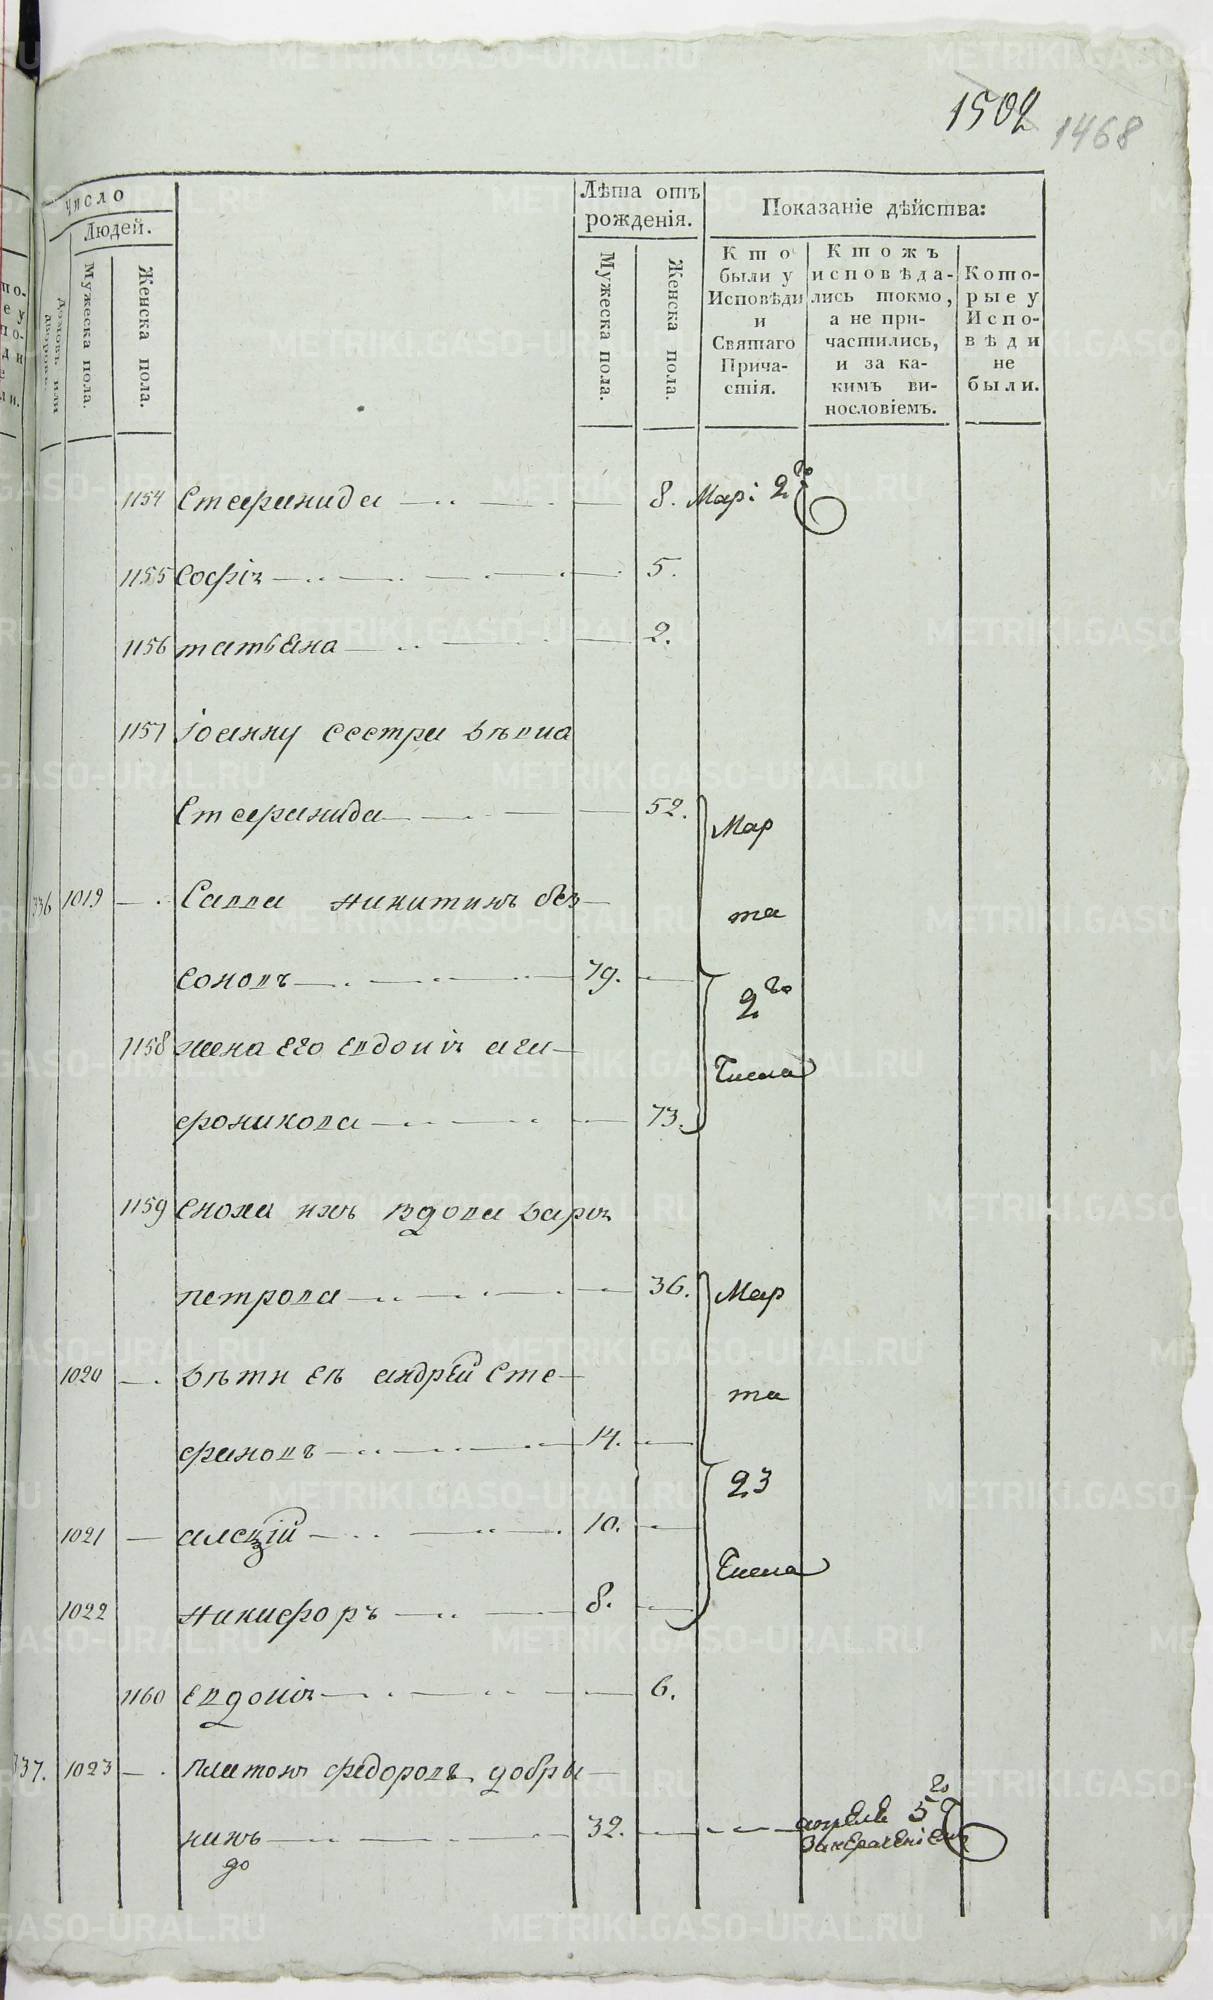 1502 1468
Число
Людей.
Домовъ или дворовъ.
Мужеска пола.
Женска пола.
Лѣта отъ рожденія.
Мужеска пола.
Женска пола.
Показаніе дѣйства:
Кто были у Исповѣди и Святаго Причастія.
Ктожъ исповѣдались токмо, а не причастились, и за какимъ винословіемъ.
Которые у Исповѣди не были.
1154 Стефанида 8. Мар: 2го
1155 Софія 5.
1156 татьяна 2.
1157 Іоанну сестра вдвца
Стефанида 52. Мар
336 1019 Савва никитинъ без та
соновъ 79. 2го
1158 жена его евдокія ага Числа
фоникова 73.
1159 сноха ихъ вдова дарья
петрова 36. Мар
1020 дѣти еѣ андрѣй сте та
фановъ 14. 23
1021 алексій 10. Числа
1022 никифоръ 8.
1160 евдокія 6.
337. 1023 платонъ федоровъ добры
нинъ 32. апреля 5го
до
METRIKI.GASO-URAL.RU